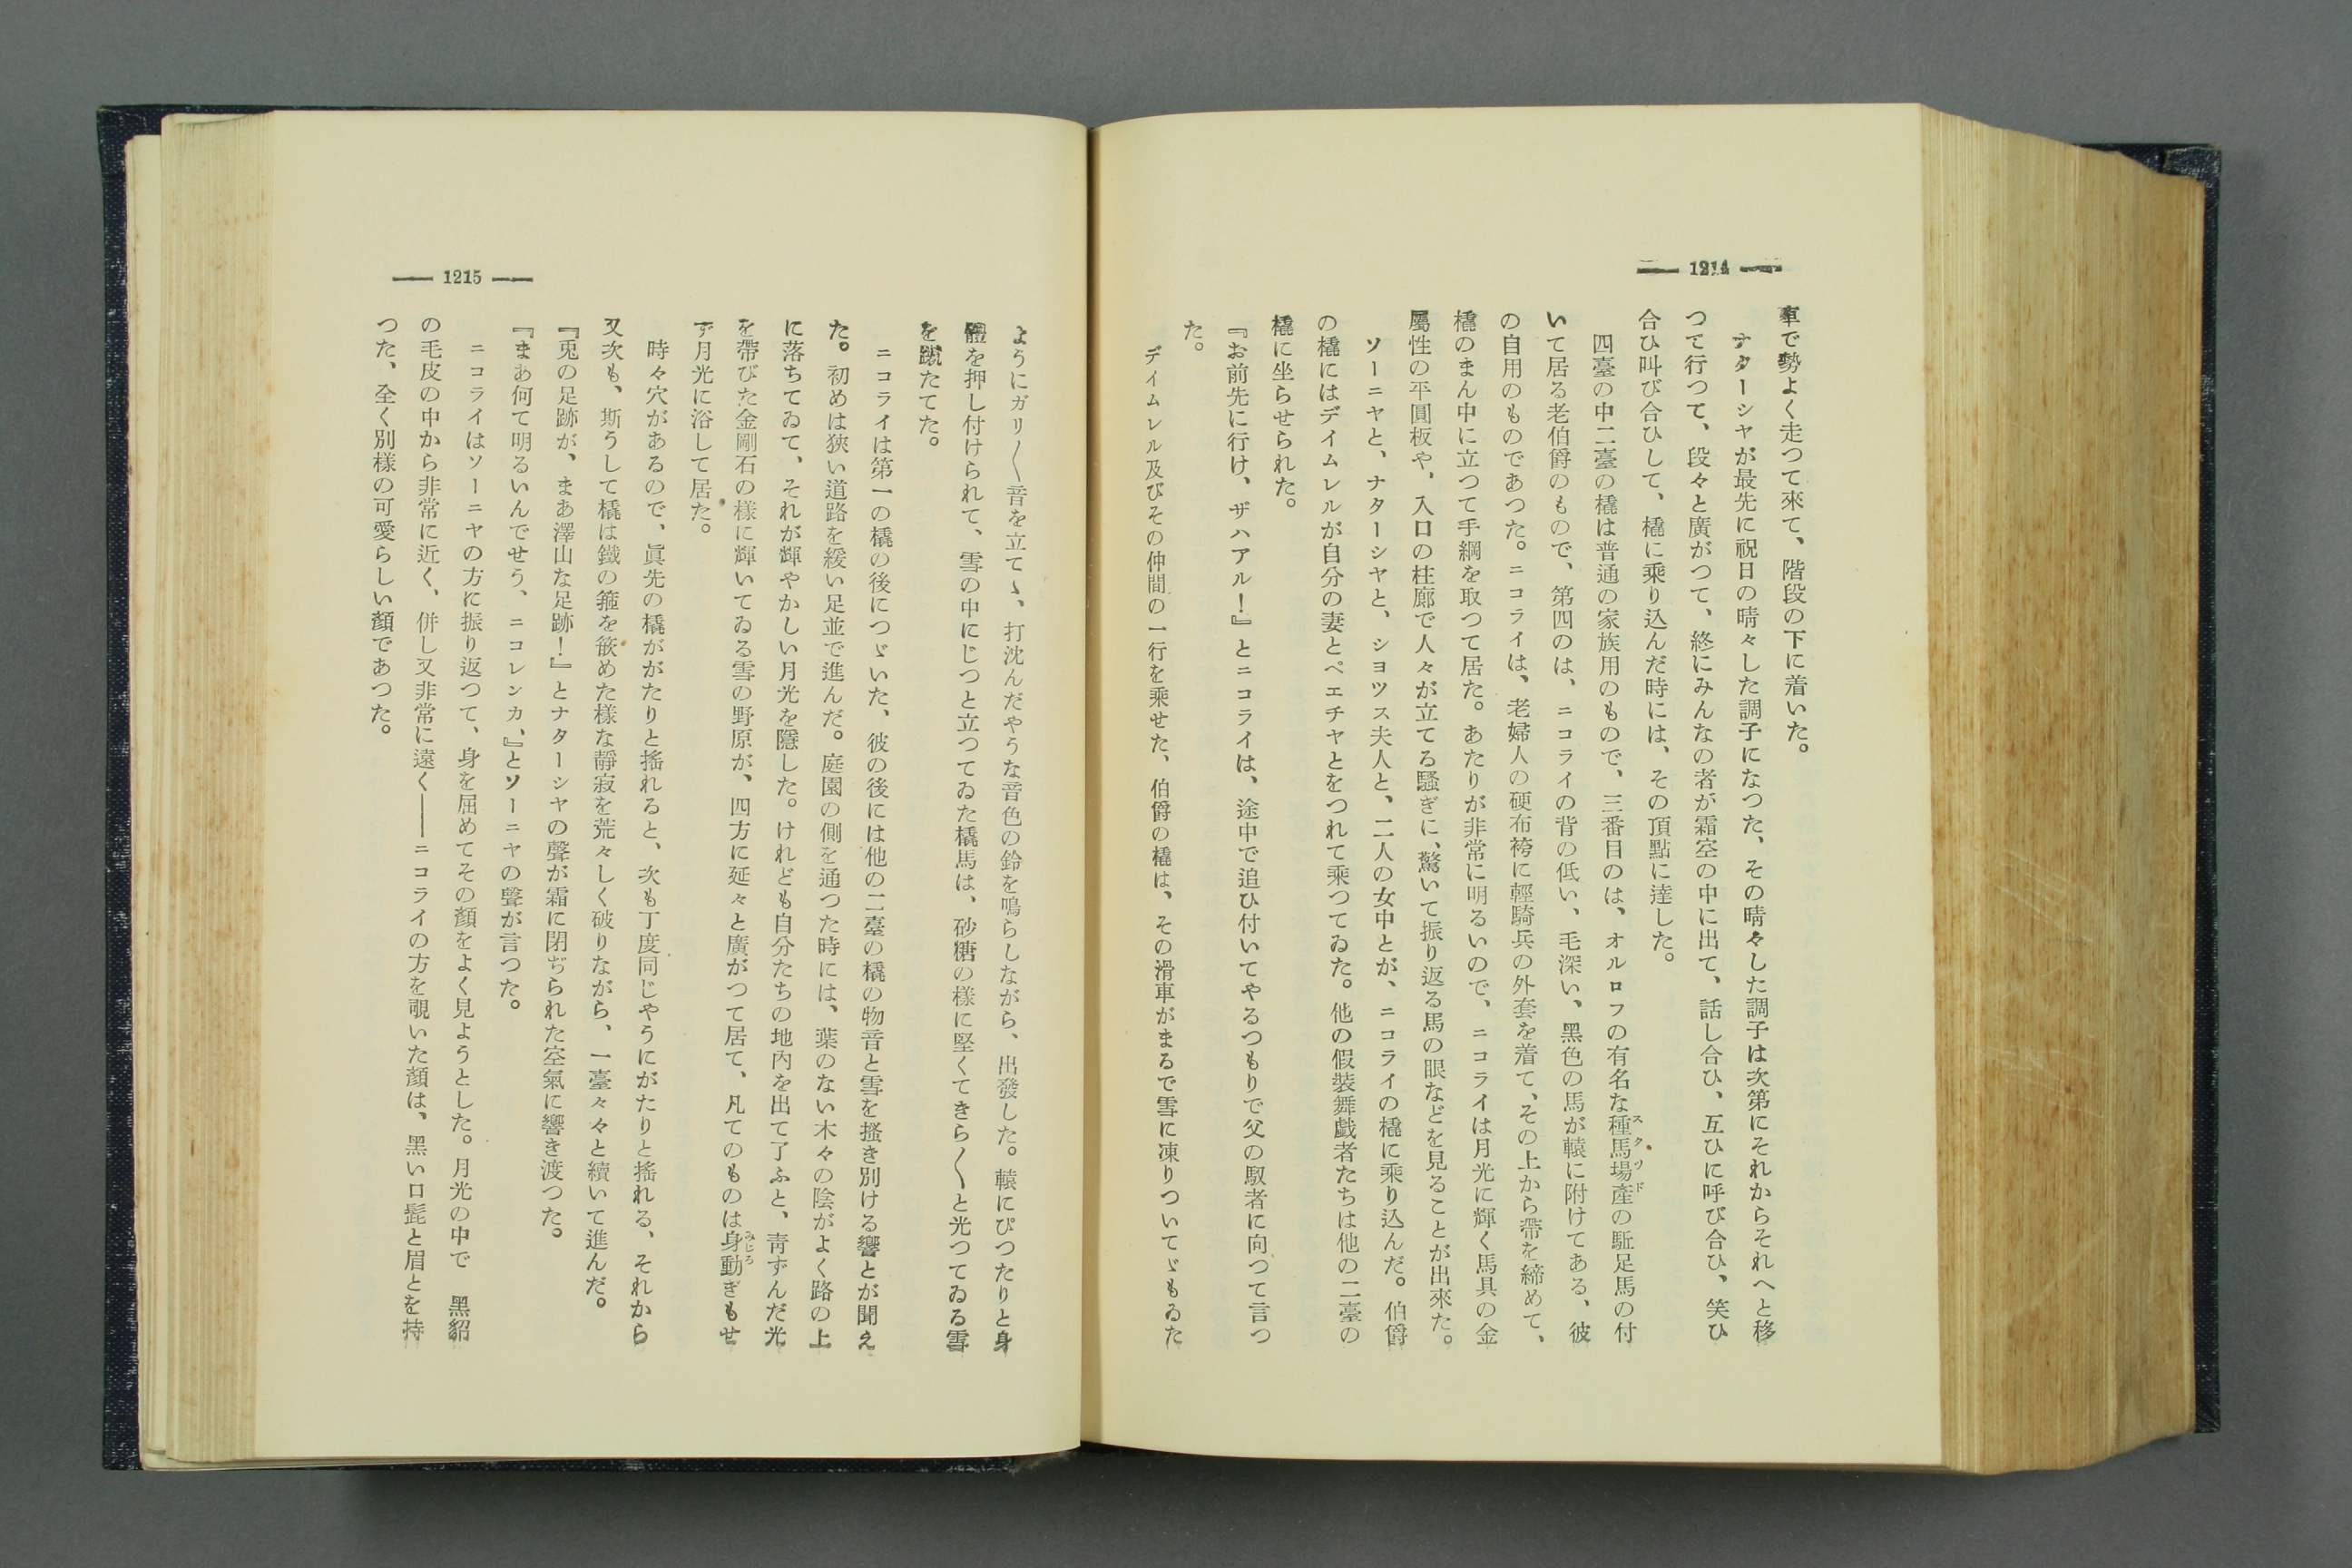 — 1214 —
車で勢よく走つて來て、階段の下に着いた。
ナターシヤが最先に祝日の晴々した調子になつた、その晴々した調子は次第にそれからそれへと移
つて行つて、段々と廣がつて、終にみんなの者が霜空の中に出て、話し合ひ、互ひに呼び合ひ、笑ひ
合ひ叫び合ひして、橇に乘り込んだ時には、その頂點に達した。
四臺の中二臺の橇は普通の家族用のもので、三番目のは、オルロフの有名な種馬場産スクリドの駈足馬の付
いて居る老伯爵のもので、第四のは、ニコライの背の低い、毛深い、黑色の馬が轅に附けてある、彼
の自用のものであつた。ニコライは、老婦人の硬布袴に輕騎兵の外套を着て、その上から帶を締めて、
橇のまん中に立つて手綱を取つて居た。あたりが非常に明るいので、ニコライは月光に輝く馬具の金
屬性の平圓板や、入口の柱廊で人々が立てる騷ぎに、驚いて振り返る馬の眼などを見ることが出來た。
ソーニヤと、ナターシヤと、シヨツス夫人と、二人の女中とが、ニコライの橇に乘り込んだ。伯爵
の橇にはデイムレルが自分の妻とペエチヤとをつれて乘つてゐた。他の假裝舞戲者たちは他の二臺の
橇に坐らせられた。
『お前先に行け、ザハアル！』とニコライは、途中で追ひ付いてやるつもりで父の馭者に向つて言つ
た。
デイムレル及びその仲間の一行を乘せた、伯爵の橇は、その滑車がまるで雪に凍りついてゞもゐた
— 1215 —
ようにガリ〱音を立てゝ、打沈んだやうな音色の鈴を鳴らしながら、出發した。轅にぴつたりと身
體を押し付けられて、雪の中にじつと立つてゐた橇馬は、砂糖の樣に堅くてきら〱と光つてゐる雪
を蹴たてた。
ニコライは第一の橇の後につゞいた、彼の後には他の二臺の橇の物音と雪を搔き別ける響とが聞え
た。初めは狹い道路を緩い足並で進んだ。庭園の側を通つた時には、葉のない木々の陰がよく路の上
に落ちてゐて、それが輝やかしい月光を隱した。けれども自分たちの地內を出て了ふと、靑ずんだ光
を帶びた金剛石の樣に輝いてゐる雪の野原が、四方に延々と廣がつて居て、凡てのものは身動みじろぎもせ
ず月光に浴して居た。
時々穴があるので、眞先の橇ががたりと搖れると、次も丁度同じやうにがたりと搖れる、それから
又次も、斯うして橇は鐵の箍を篏めた樣な靜寂を荒々しく破りながら、一臺々々と續いて進んだ。
『兎の足跡が、まあ澤山な足跡！』とナターシヤの聲が霜に閉ぢられた空氣に響き渡つた。
『まあ何て明るいんでせう、ニコレンカ、』とソーニヤの聲が言つた。
ニコライはソーニヤの方に振り返つて、身を屈めてその顏をよく見ようとした。月光の中で　黑貂
の毛皮の中から非常に近く、併し又非常に遠く――ニコライの方を覗いた顏は、黑い口髭と眉とを持
つた、全く別樣の可愛らしい顏であつた。